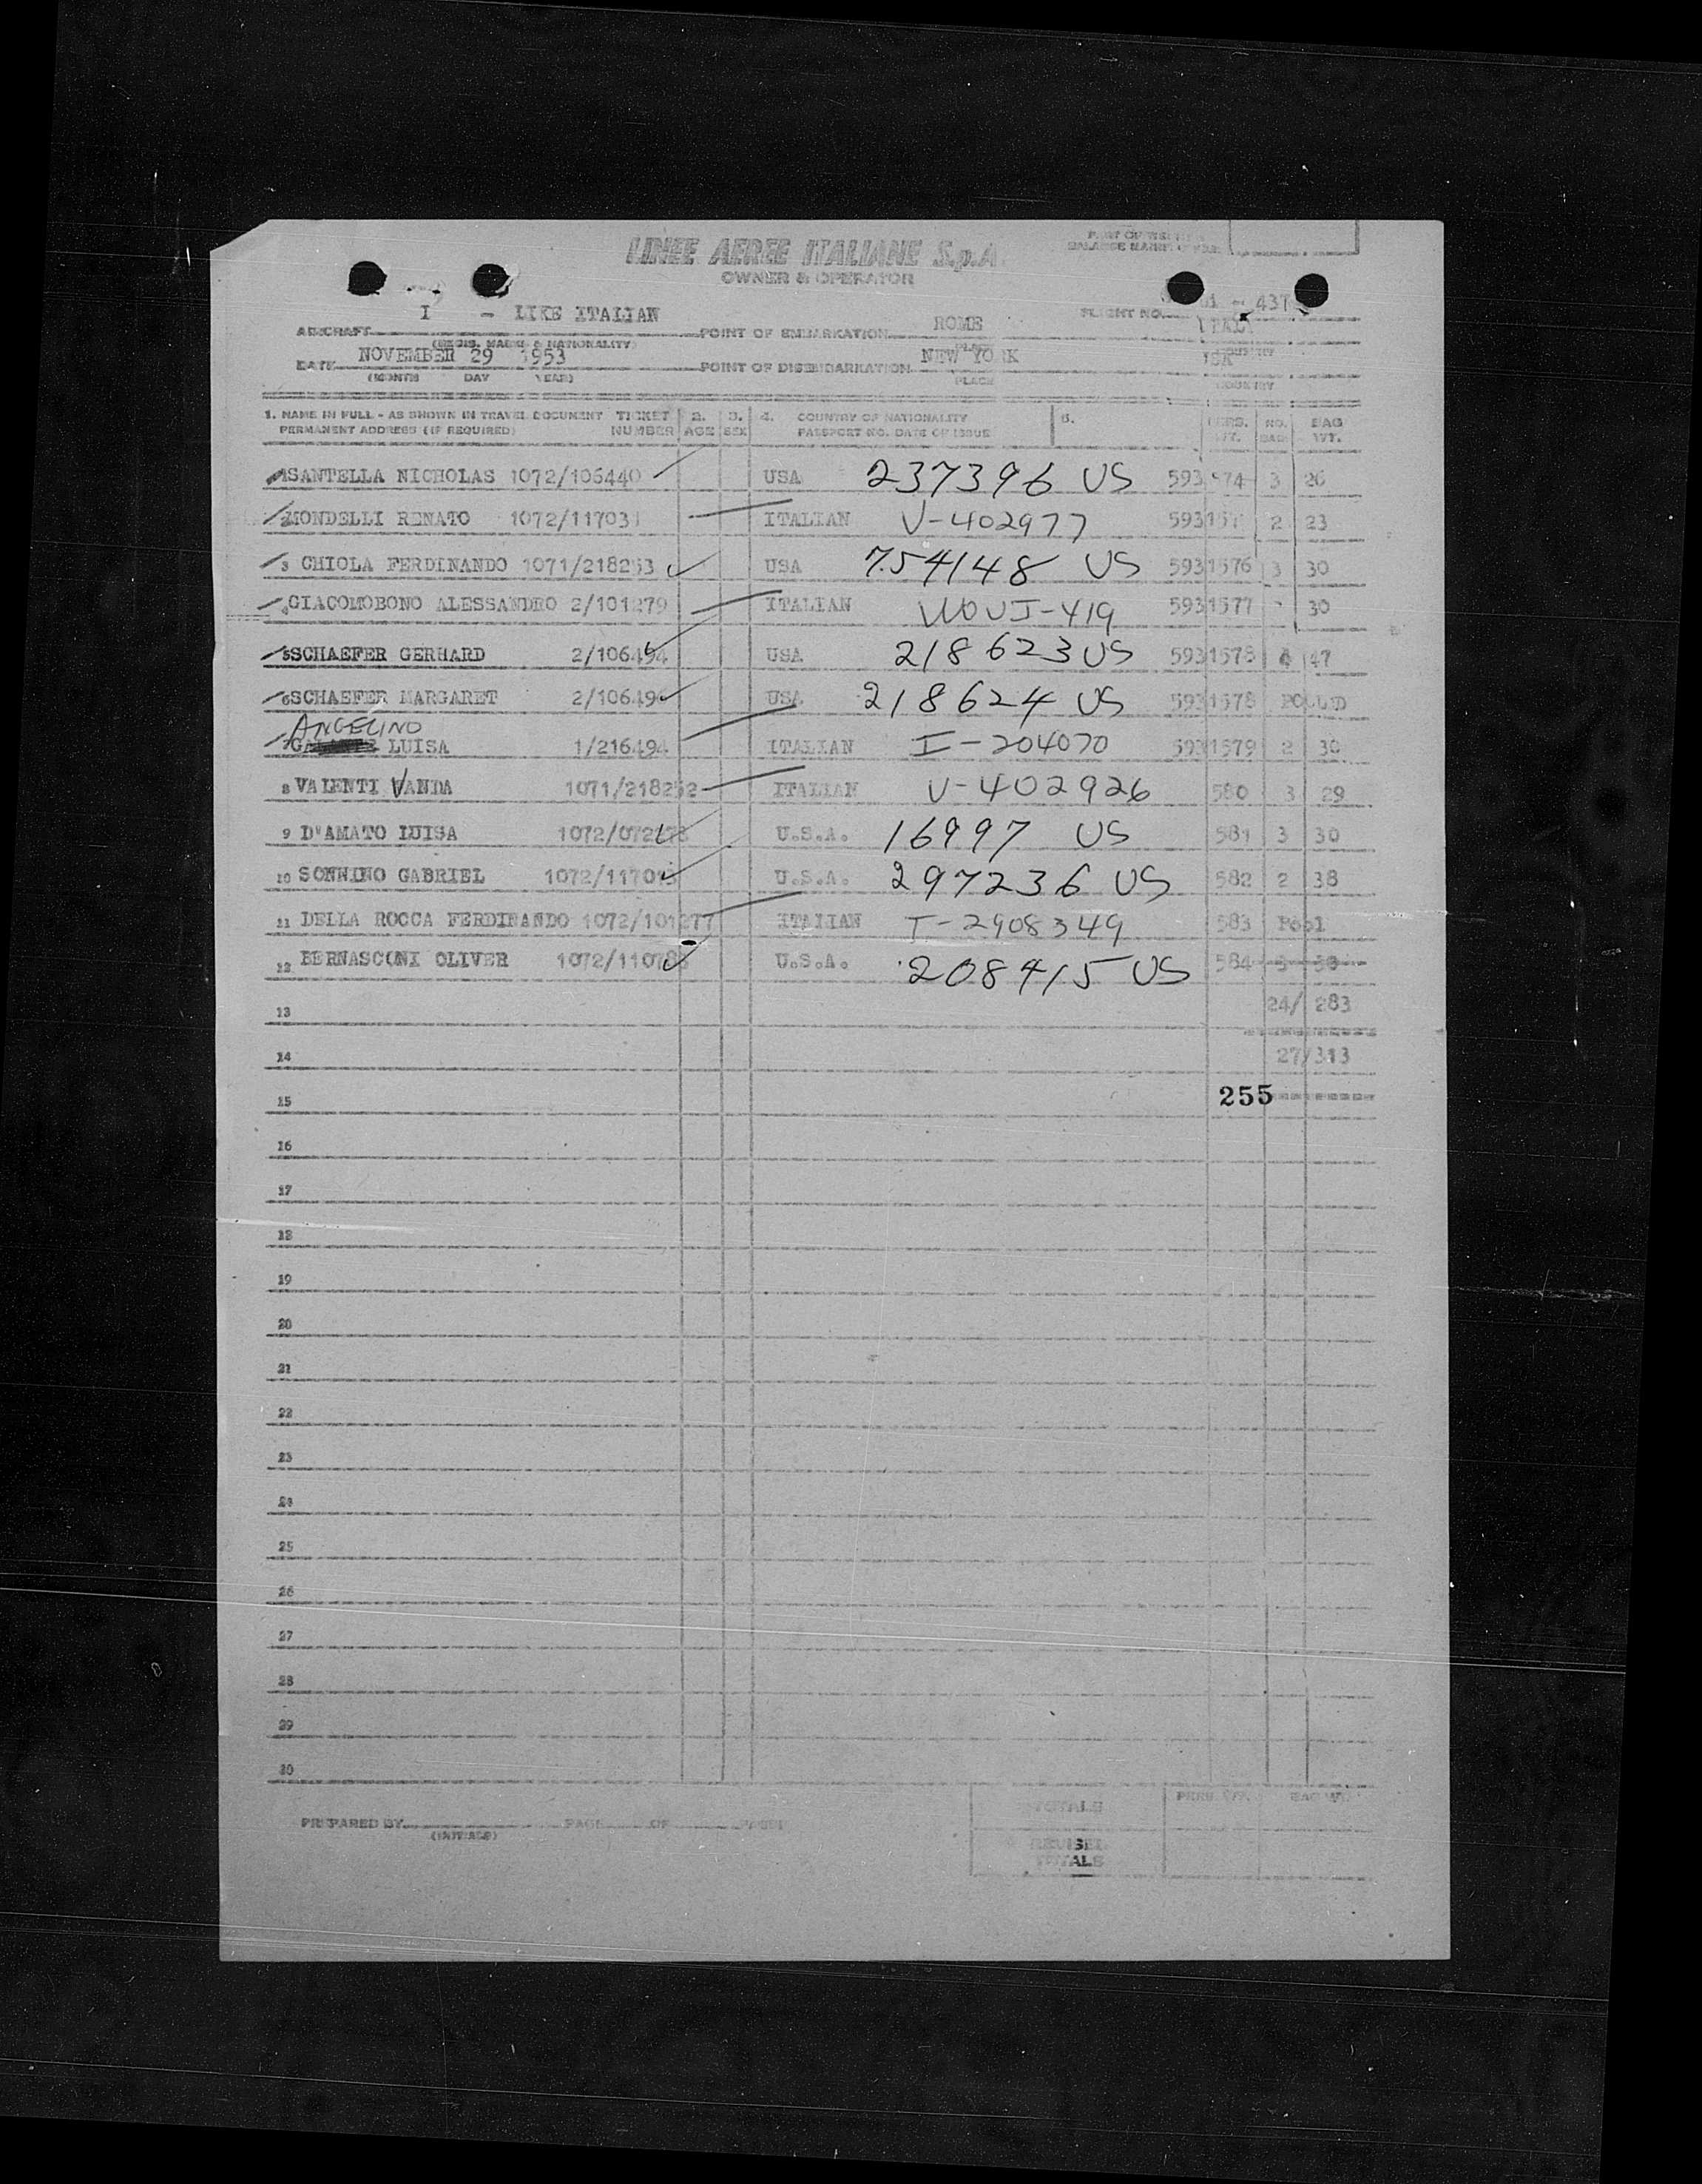 LINEE AEREE ITALIANE S.p.A.
OWNER & OPERATOR
I - LIKE ITALIAN
AIRCRAFT POINT OF EMBARKATION ROME FLIGHT NO. 431
(REGIS. MARKS & NATIONALITY) PLACE ITALY
DATE NOVEMBER 29 1953 POINT OF DISEMBARKATION NEW YORK USA
(MONTH DAY YEAR) PLACE COUNTRY
1. NAME IN FULL - AS SHOWN IN TRAVEL DOCUMENT TICKET 2. 3. 4. COUNTRY OF NATIONALITY 5. PERS. NO. BAG
PERMANENT ADDRESS (IF REQUIRED) NUMBER AGE SEX PASSPORT NO. DATE OF ISSUE WT. BAGS WT.
SANTELLA NICHOLAS 1072/106440 USA 237396 US 593 574 3 26
MONDELLI RENATO 1072/117031 ITALIAN V-402977 593157 2 23
3 CHIOLA FERDINANDO 1071/218253 USA 754148 US 5931576 3 30
4 GIACOMOBONO ALESSANDRO 2/101279 ITALIAN 5931577 30
5 SCHAEFER GERHARD 2/106494 USA 218623 US 5931578 4 47
6 SCHAEFER MARGARET 2/10649 USA 218624 US 5931578 POOLED
ANGELINO
7 LUISA 1/216494 ITALIAN I-204070 5931579 2 30
8 VALENTI VANDA 1071/218252 ITALIAN V-402926 580 3 29
9 D'AMATO LUISA 1072/072 U.S.A. 16997 US 581 3 30
10 SONNINO GABRIEL 1072/117015 U.S.A. 297236 US 582 2 38
11 DELLA ROCCA FERDINANDO 1072/101277 ITALIAN T-2908349 583 Pool
12 BERNASCONI OLIVER 1072/11078 U.S.A. 208415 US 584 3 30
13 24/ 283
14 27/313
15 255
16
17
18
19
20
21
22
23
24
25
26
27
28
29
30
PREPARED BY PAGE OF TOTALS PERS. WT. BAG WT.
(INITIALS) REVISED
TOTALS